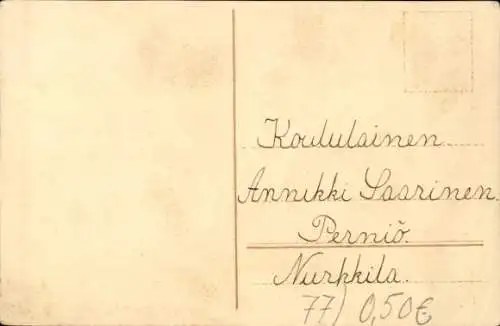 Koululainen
Annikki Saarinen.
Perniö.
Nurkkila.
77) 0,50€